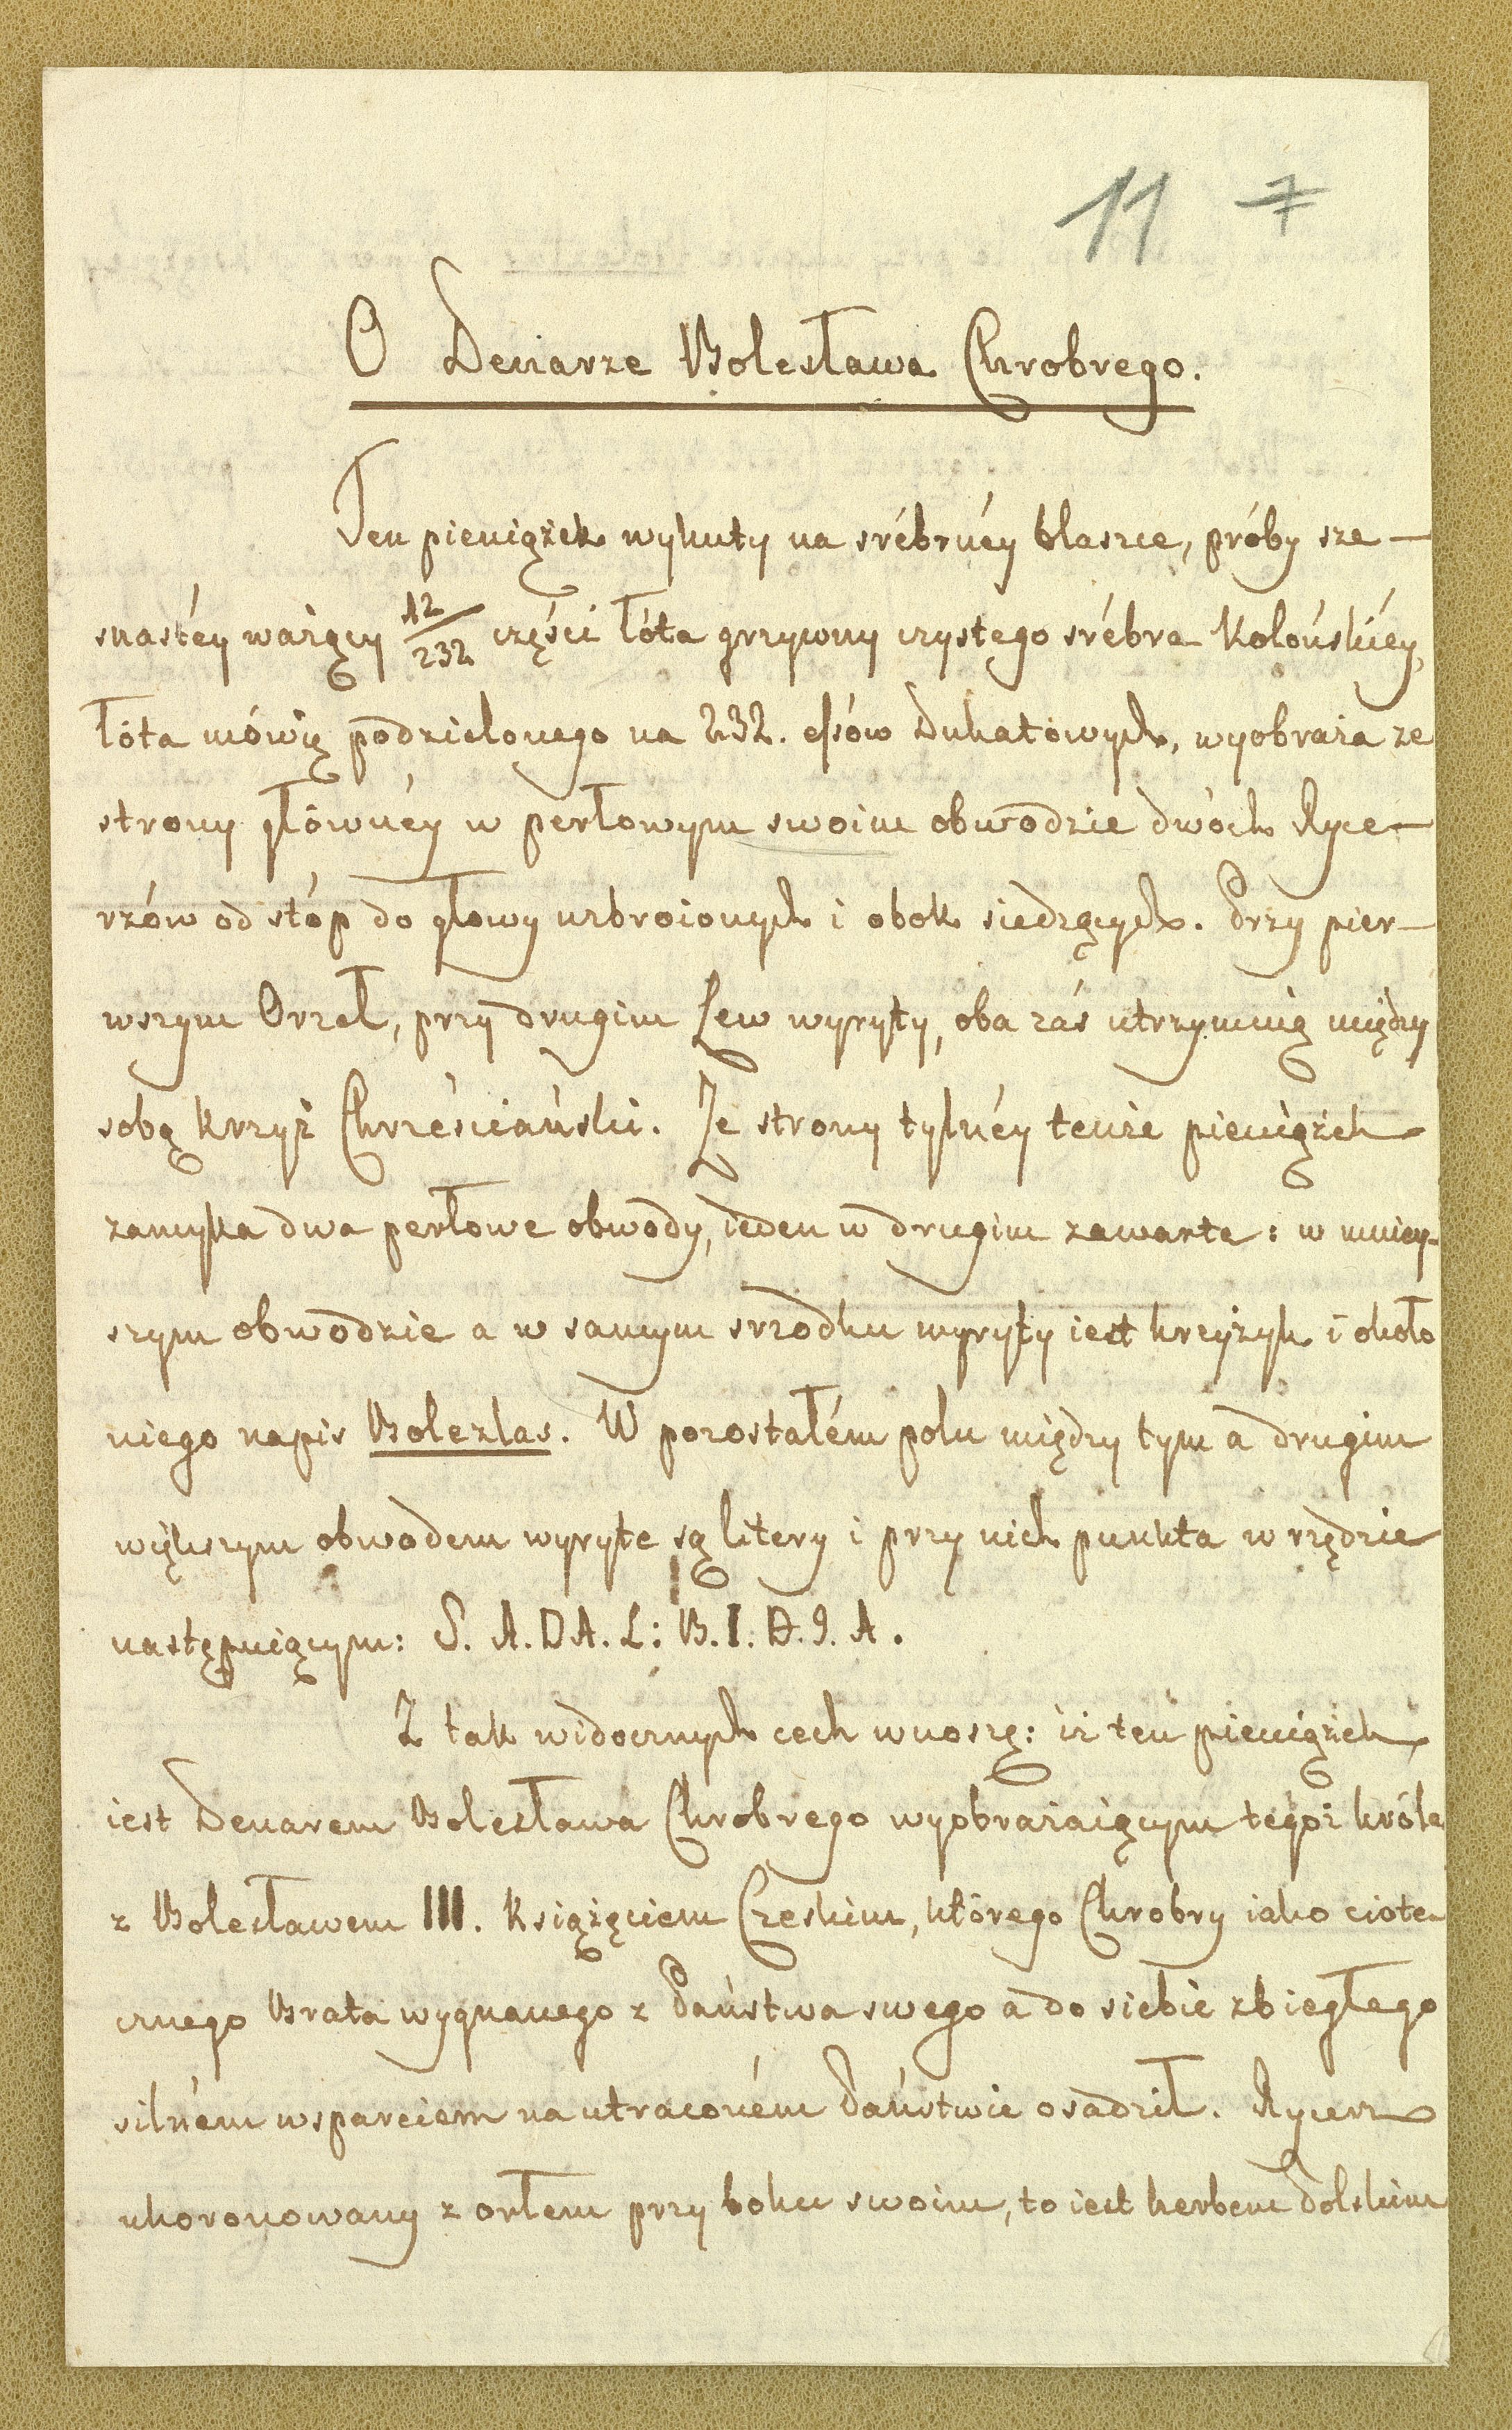 11 7
O Denarze Bolesława Chrobrego.
Ten pieniążek wykuty na srébrnéy blaszce, próby sze-
snastéy ważący 12/232 części łóta grzywny czystego srébra Kolońskiéy,
łóta mówię podzielonego na 232. essów Dukatowych, wyobraża ze
strony głównéy w perłowym swoim obwodzie dwóch Ryce-
rzów od stóp do głowy uzbroionych i obok siedzących. Przy pier-
wszym Orzeł, przy drugim Lew wyryty, oba zaś utrzymuią między
sobą krzyż Chrześciański. Ze strony tylnéy tenże pieniążek
zamyka dwa perłowe obwody, ieden w drugim zawarte: w mniey-
szym obwodzie a w samym srzodku wyryty iest krzyżyk i około
niego napis Bolezlas. W pozostałém polu między tym a drugim
większym obwodem wyryte są litery i przy nich punkta w rzędzie
następuiącym: S. A. DA. L: B. I. D. I. A.
Z tak widocznych cech wnoszę: iż ten pieniążek
iest Denarem Bolesława Chrobrego wyobrażaiącym tegoż króla
z Bolesławem III. Książęciem Czeskim, którego Chrobry iako ciote-
cznego Brata wygnanego z Państwa swego a do siebie zbiegłego
silném wsparciem na utraconém Państwie osadził. Rycerz
ukoronowany z orłem przy boku swoim, to iest herbem Polskim